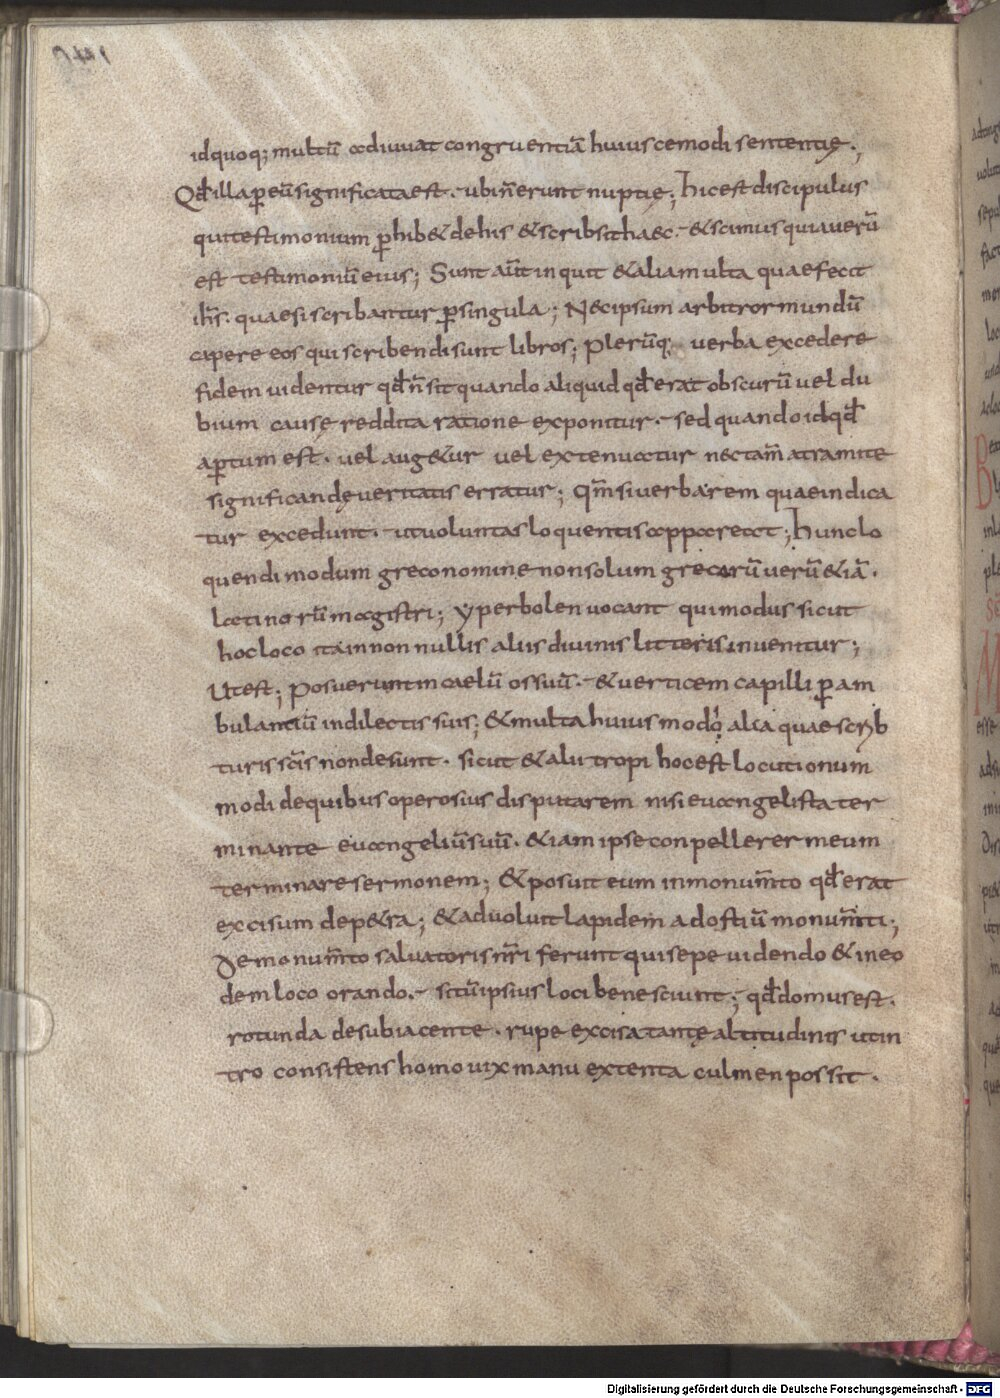 idquoq; multū adiuuat congruentiā huiuscemodi sententię;
Qđ illa ꝑ eū significata est. ubi n̄ erunt nuptię; hic est discipulus
qui testimonium ꝑhib& de his & scribsit haec. & scimus quia uerū
est testimoniū eius; Sunt aūt inquit & alia multa quae fecit
ihs̄. quae si scribantur ꝑ singula; Nec ipsum arbitror mundū
capere eos qui scribendi sunt libros; Plerūq; uerba excedere
fidem uidentur qđ n̄ sit quando aliquid qđ erat obscurū uel du
bium cause reddita ratione exponitur. sed quando id qđ
aꝑtum est. uel aug&ur uel extenuatur nec tam̄ a tramite
significandę ueritatis erratur; qm̄ si uerba rem quae indica
tur excedunt. ut uoluntas loquentis appareat; hunc lo
quendi modum greco nomine non solum grecorū uerū & iā.
latinorū magistri; yperbolen uocant qui modus sicut
hoc loco ita in non nullis aliis diuinis litteris inuenitur;
Ut est; Posuerunt in caelū os suū. & uerticem capilli ꝑam
bulantiū in dilectis suis; & multa huius modi alia quae scrib
turis sc̄is non desunt. sicut & alii tropi hoc est locutionum
modi de quibus operosius disputarem nisi euangelista ter
minante euangeliū suū. & iam ipse conpellerer meum
terminare sermonem; & posuit eum in monum̄to qđ erat
excisum de p&ra; & aduoluit lapidem ad ostiū monum̄ti;
De monum̄to saluatoris nr̄i ferunt qui sepe uidendo & in eo
dem loco orando. situ ipsius loci bene sciunt; qđ domus est.
rotunda de subiacente. rupe excisa tantę altitudinis ut in
tro consistens homo uix manu extenta culmen possit.
Digitalisierung gefördert durch die Deutsche Forschungsgemeinschaft - DFG